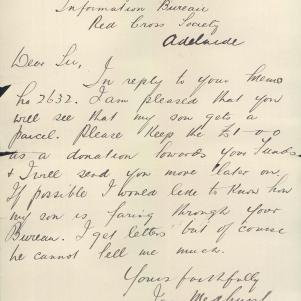 Information Bureau
Red Cross Society
Adelaide
Dear Sir,
In reply to your Memo
No 2632. I am pleased that you
will see that my son gets a
parcel. Please keep the £1-0-0
as a donation towards your Funds
& I will send you more later on.
If possible I would like to know how
my son is faring through your
Bureau. I get letters but of course
he cannot tell me much.
Yours faithfully